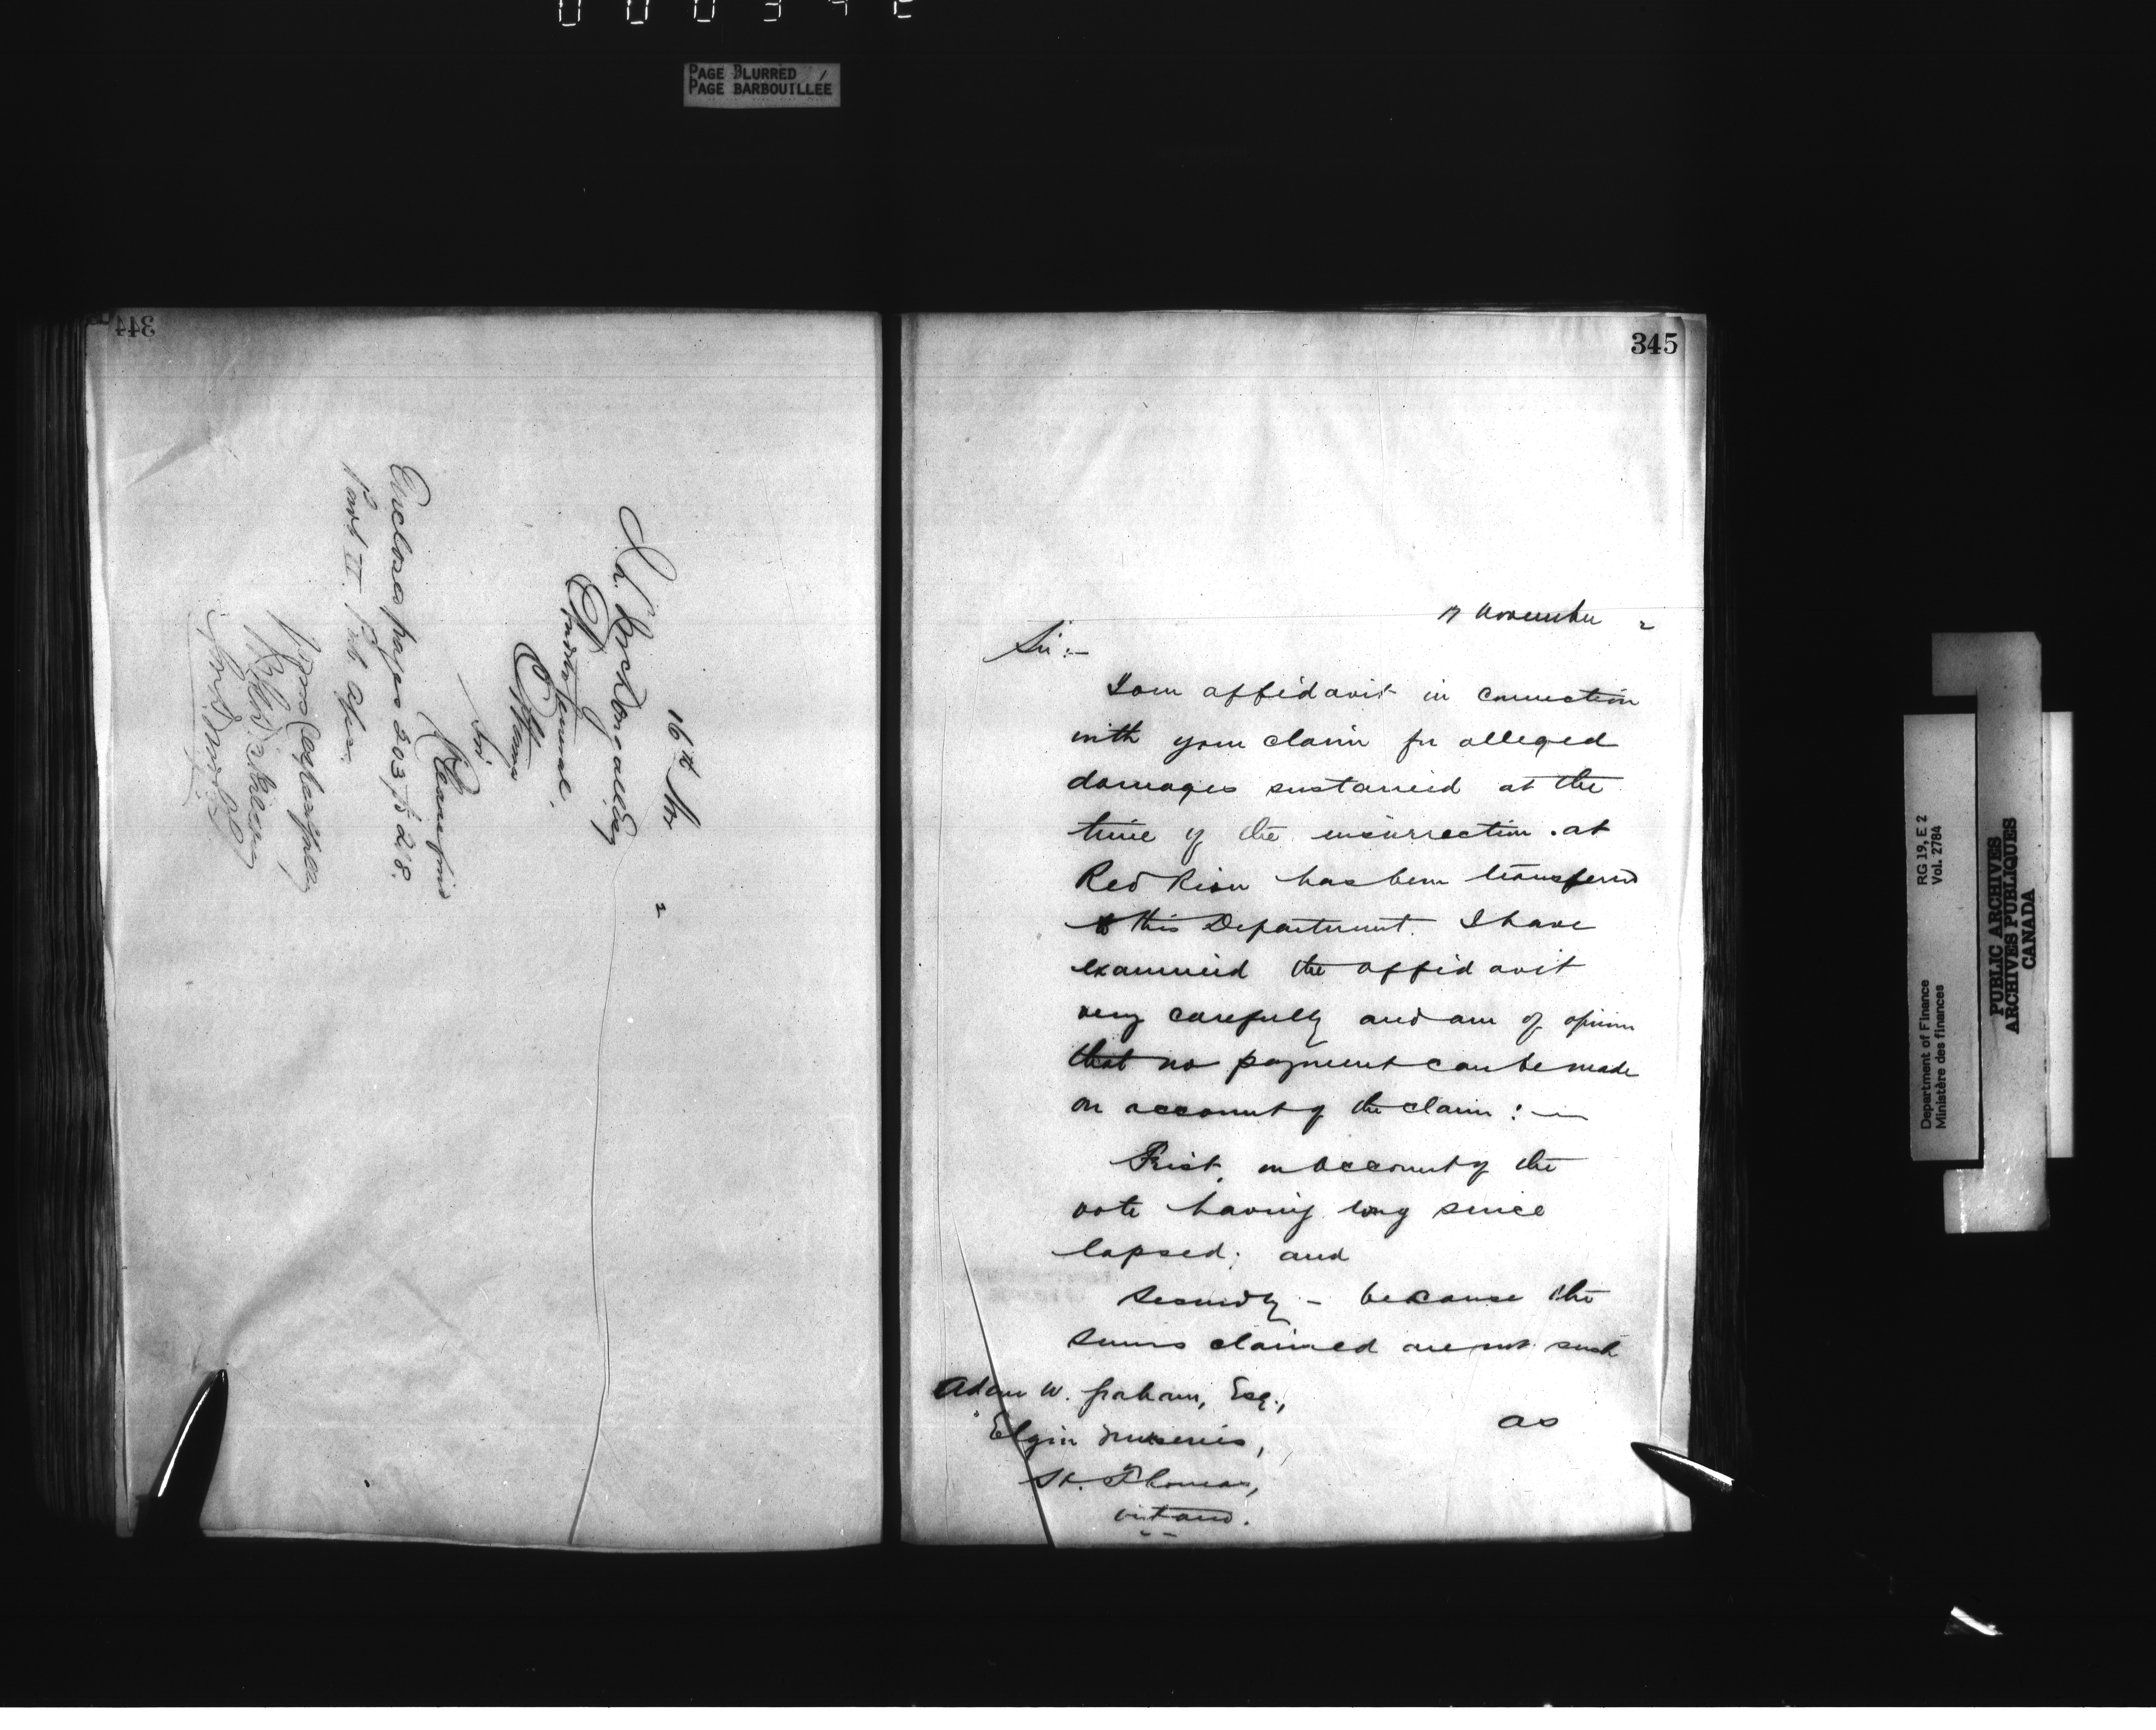 PAGE BLURRED
PAGE BARBOUILLÉE
344
16th Nov 2
Auditor General,
Ottawa
Sir
Please find
Enclosed pages 203 to 218.
Part II
345
17 November 2
Sir:—
Your affidavit in connection
with your claim for alleged
damages sustained at the
time of the insurrection at
Red River has been transferred
to this Department. I have
examined the affidavit
very carefully and am of opinion
that no payment can be made
on account of the claim:—
First, on account of the
vote having long since
lapsed; and
Secondly – because the
sums claimed are not such
as
Adam W. Graham, Esq.,
Elgin Nurseries,
St. Thomas,
Ontario.
Department of Finance
Ministère des finances
RG 19, E 2
Vol. 2784
PUBLIC ARCHIVES
ARCHIVES PUBLIQUES
CANADA